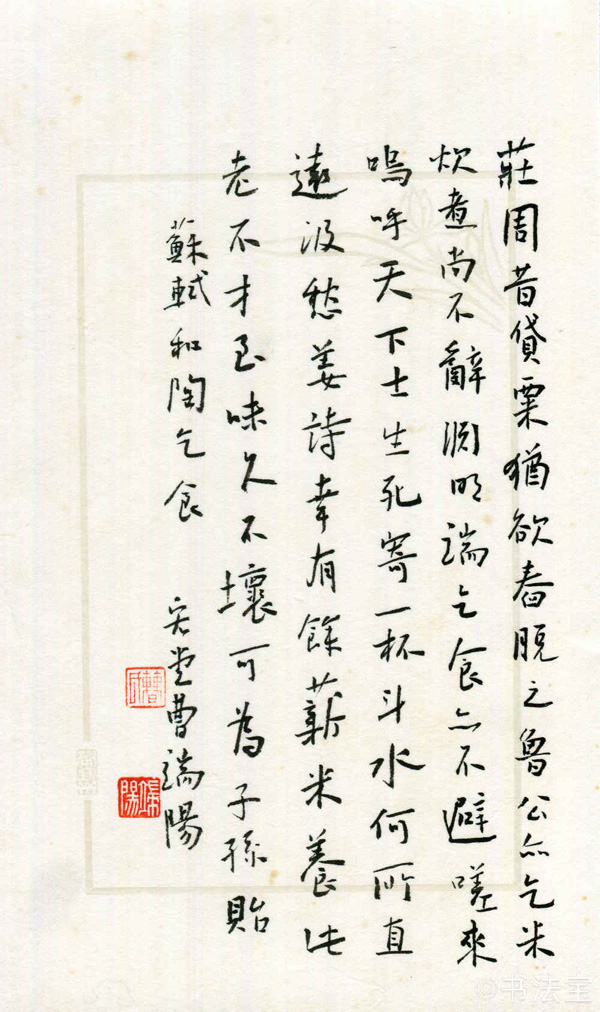 莊周昔貸粟猶欲舂脫之魯公亦乞米
炊煮尚不辭淵明端乞食亦不避嗟來
嗚呼天下士生死寄一杯斗水何所直
遠汲愁姜詩幸有餘薪米養此
老不才至味久不壞可為子孫貽
蘇軾和陶乞食 堂曹端陽
端陽
书法